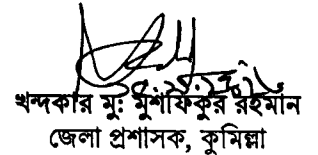 খন্দকার মুঃ মুশফিকুর রহমান
জেলা প্রশাসক, কুমিল্লা